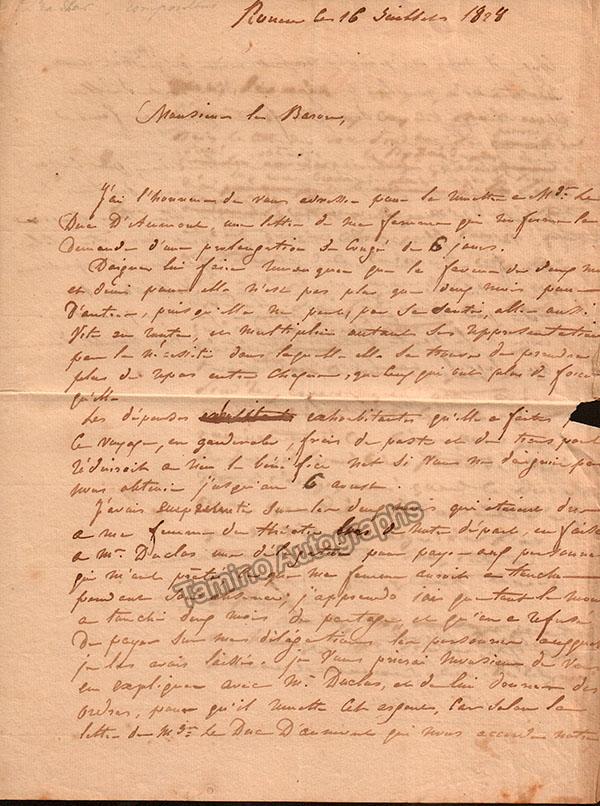 Rouen le 16 Juillet 1828
Monsieur le Baron,
J'ai l'honneur de vous adresser pour la remettre a Mgr le
Duc D'Aumont, une lettre de ma femme qui renferme la
Demande d'une prolongation de Congé de 6 jours.
Daignez lui faire remarquer que la faveur de deux mois
et demi pour elle n'est pas plus que deux mois pour
D'autres, puisqu'elle ne peut, par sa santé, aller aussi
Vite en route, ni multiplier autant ses représentations
par la nécessité dans laquelle elle se trouve de prendre
plus de repos entre chaque, que ceux qui ont plus de force
qu'elle.
Les dépenses exhorbitantes qu'elle a faites pour
Ce voyage, en garderobe, frais de poste et de transport
réduiroit a rien le bénéfice net si vous ne daigniez pas
nous obtenir jusqu'au 6 aoust.
J'avais sur les deux mois qui étaient dus
a ma femme du théâtre de notre départ, en faite
a Mr. Duclos une délégation pour payer aux personnes
qui m'ont que ma femme auroit a toucher
pendant son absence; j'apprends ici que tout le monde
a touché deux mois de partage, et qu'on a refusé
De payer sur mes délégations les personnes auxquelles
je les avais laissées. je Vous prierai Monsieur de Vous
en expliquer avec Mr. Duclos, et de lui donner des
Ordres, pour qu'il remette cet argent, Car selon la
lettre de Mgr le Duc D'aumont qui nous accorde notre
Tamino Autographs